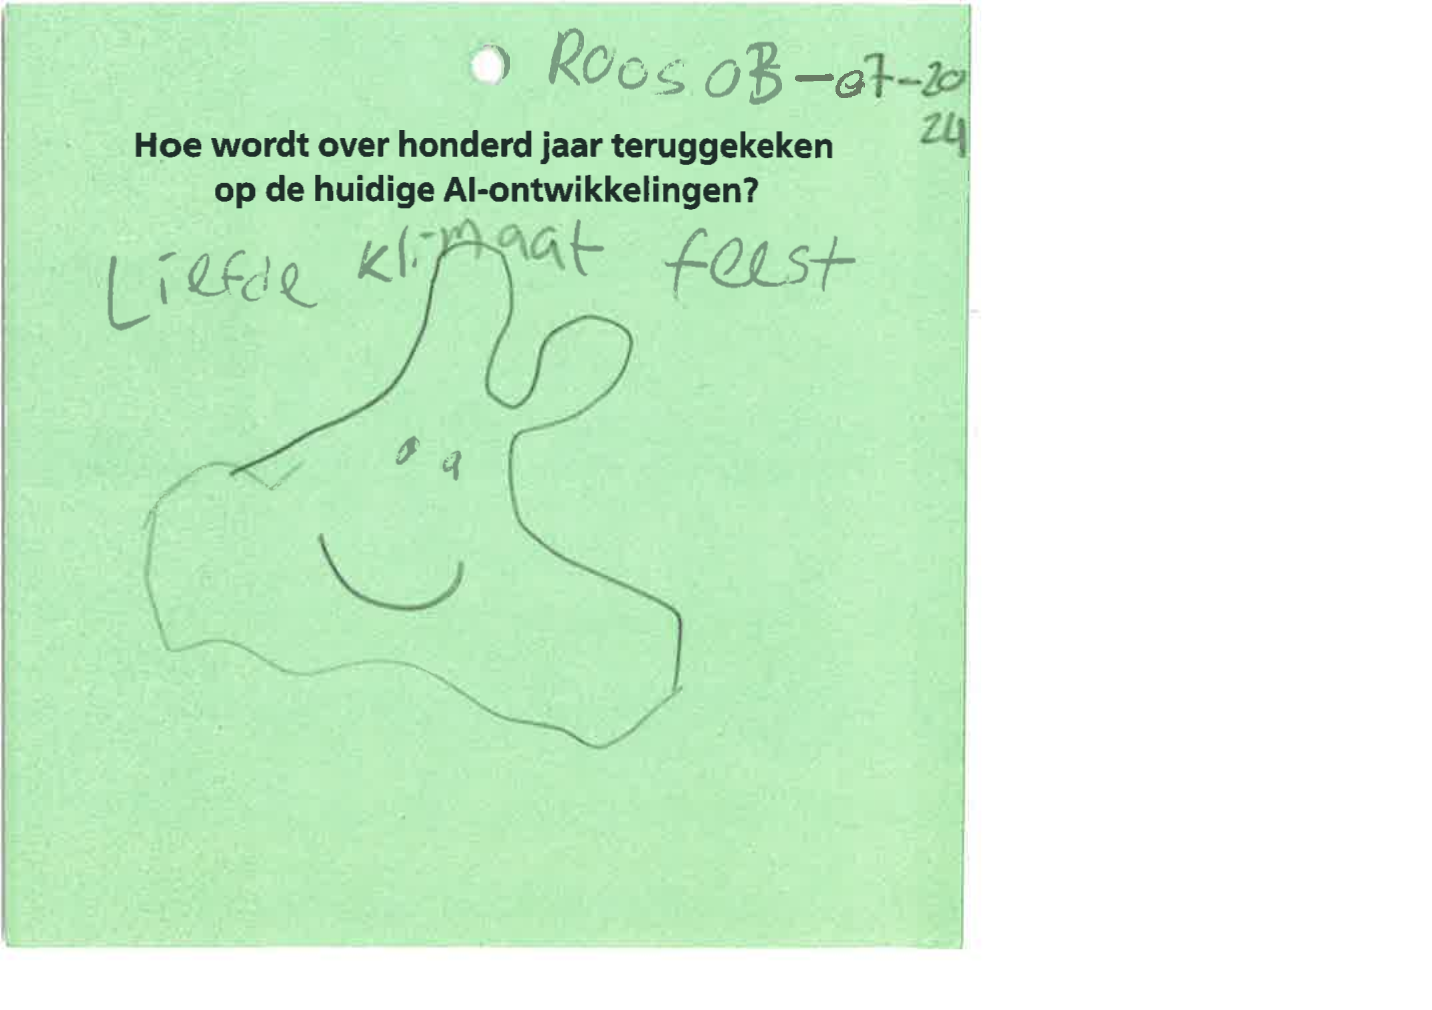 Roos 08-07-20
24
Hoe wordt over honderd jaar teruggekeken
op de huidige AI-ontwikkelingen?
Liefde klimaat feest